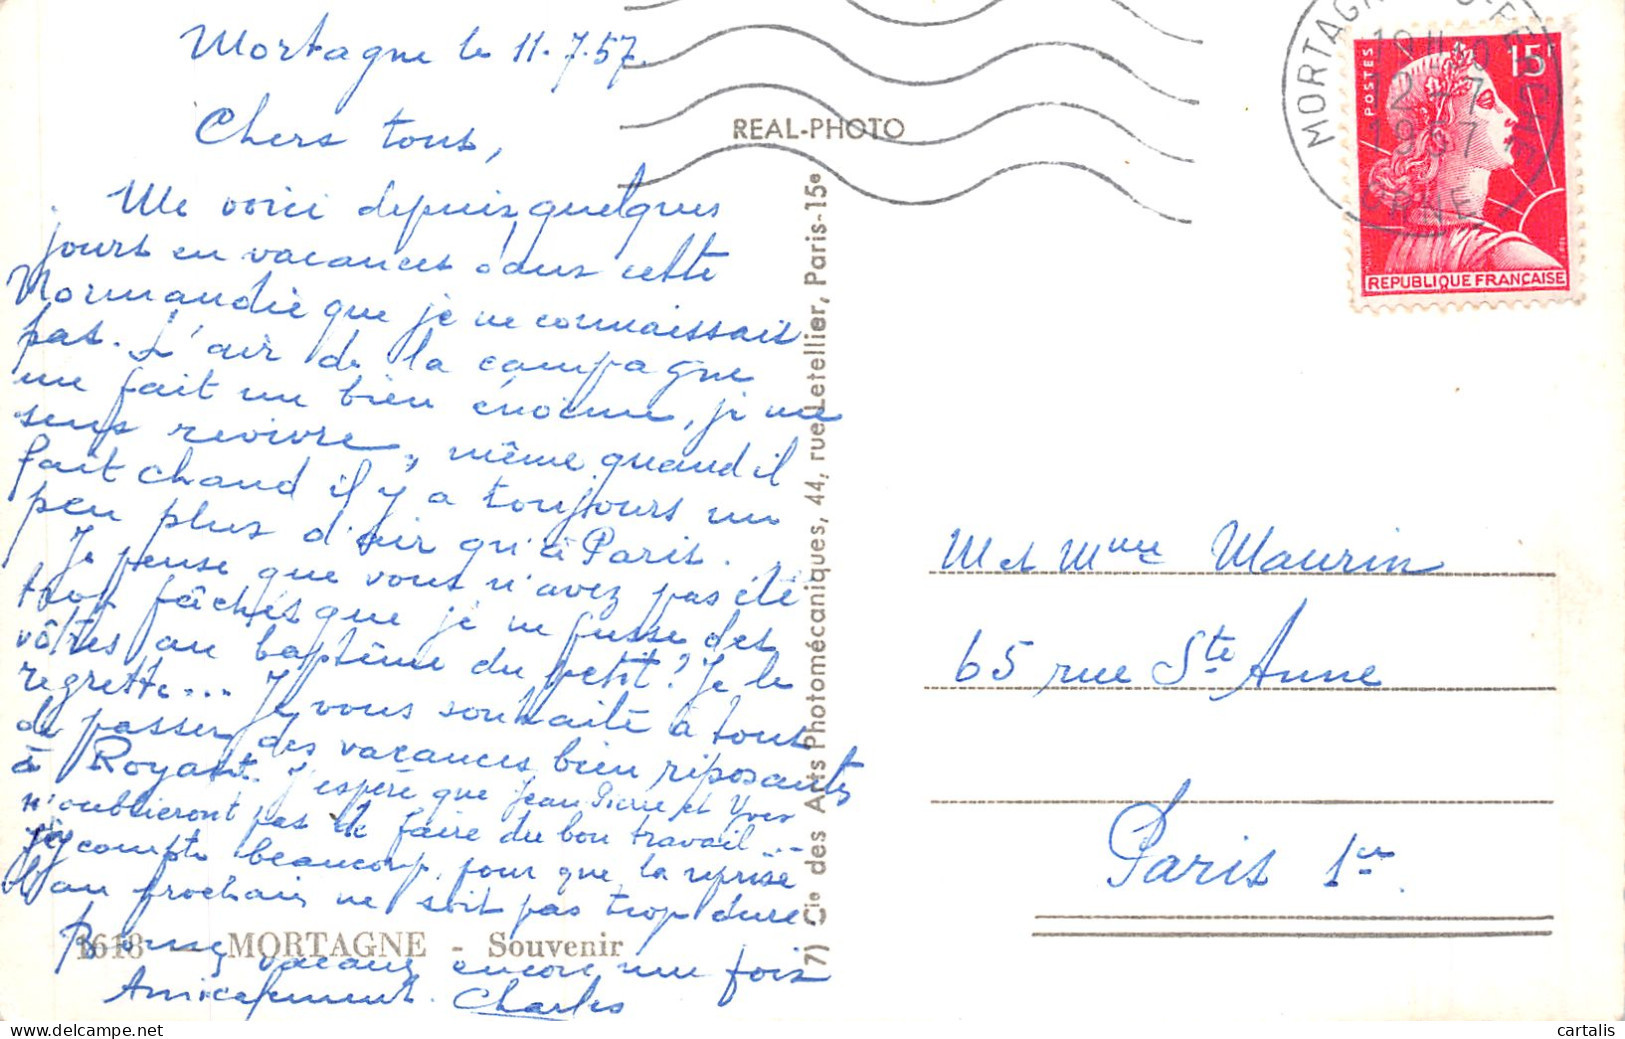 Mortagne le 11.7.57.
Chers tous,
Me voici depuis quelques
jours en vacances dans cette
Normandie que je ne connaissais
pas. L'air de la campagne
me fait un bien énorme, je me
sens revivre, même quand il
fait chaud il y a toujours un
peu plus d'air qu'à Paris.
Je pense que vous n'avez pas été
trop fâchés que je ne fusse des
vôtres au baptême du petit? Je le
regrette... Je vous souhaite à tous
de passer des vacances bien reposantes
à Royan. J'espère que Jean Pierre et Yves
n'oublieront pas de faire du bon travail...
j'y compte beaucoup, pour que la reprise
l'an prochain ne soit pas trop dure
Bonnes vacances encore une fois
Amicalement. Charles
1618 MORTAGNE - Souvenir
REAL-PHOTO
7) Cie des Arts Photomécaniques, 44, rue Letellier, Paris-15e
MORTAGNE
19H30
12-7
1957
ORNE
POSTES
15F
REPUBLIQUE FRANÇAISE
M et Mme Maurin
65 rue Ste Anne
Paris 1er